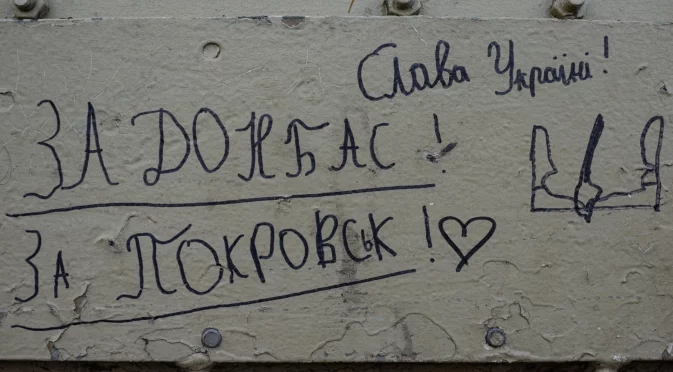 Слава Україні!
ЗА ДОНБАС!
За ПОКРОВСЬК!